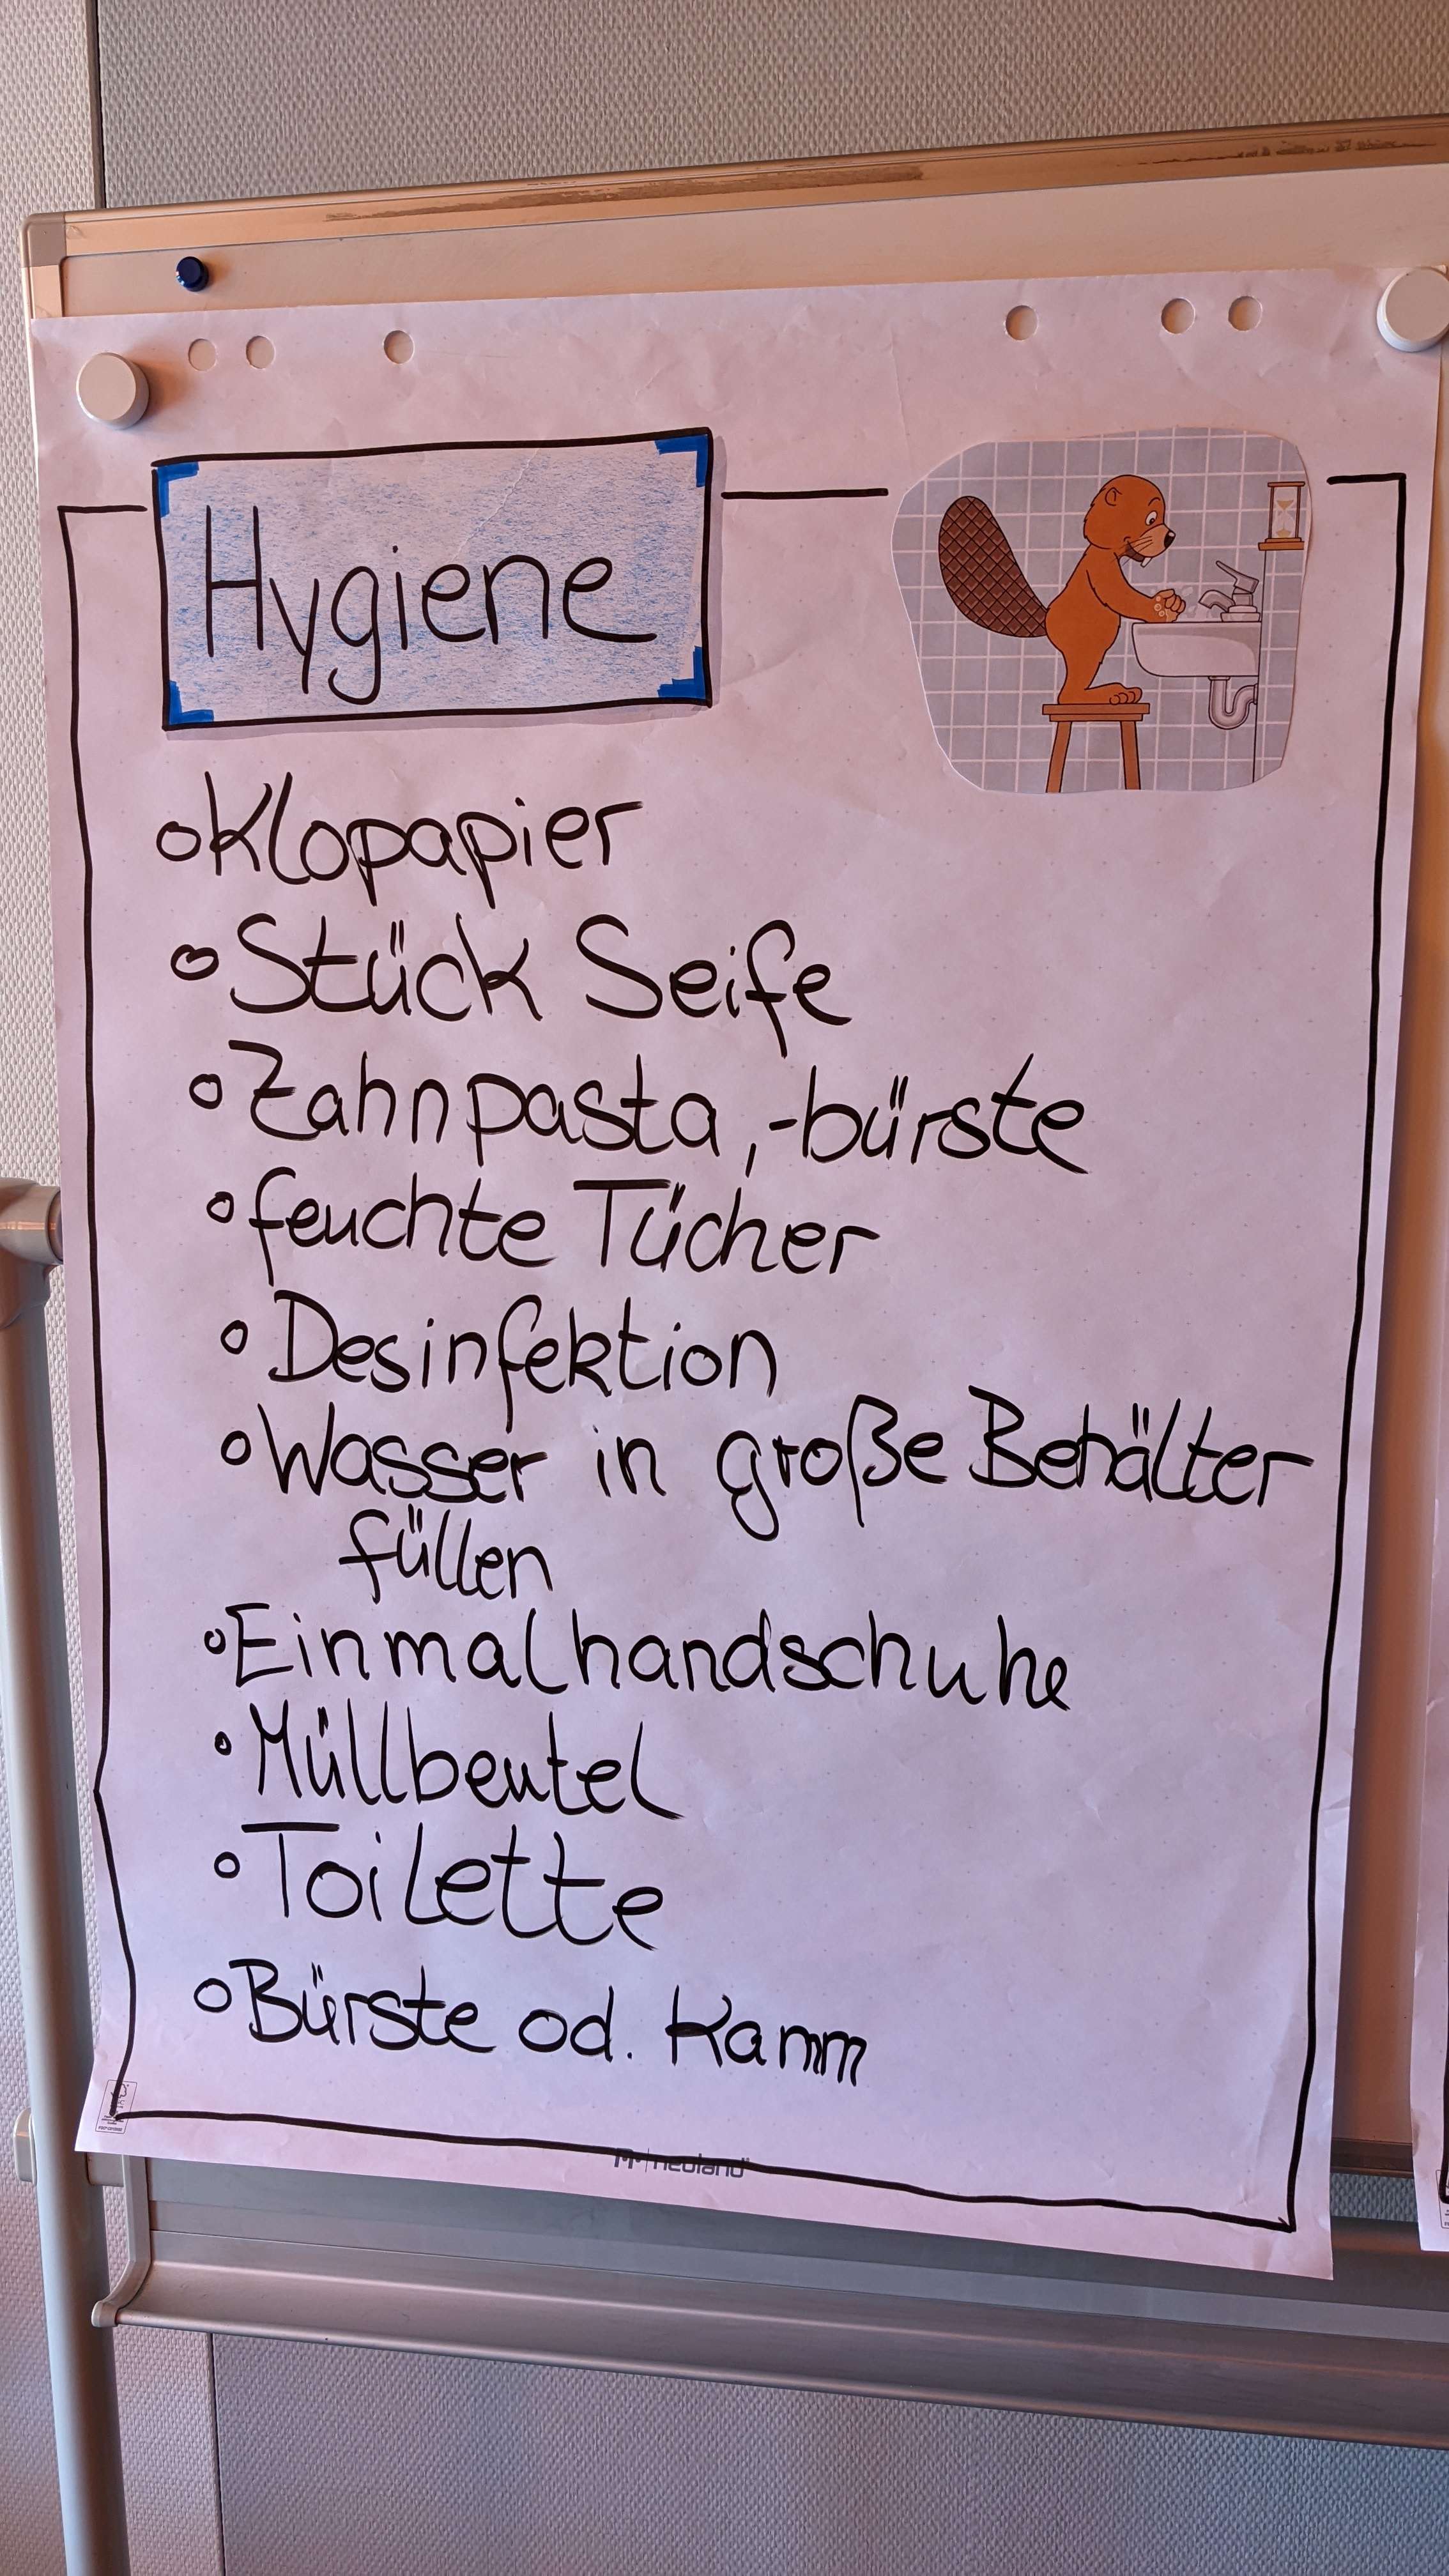 Hygiene
Klopapier
Stück Seife
Zahnpasta, -bürste
feuchte Tücher
Desinfektion
Wasser in große Behälter
füllen
Einmalhandschuhe
Müllbeutel
Toilette
Bürste od. Kamm
neuland